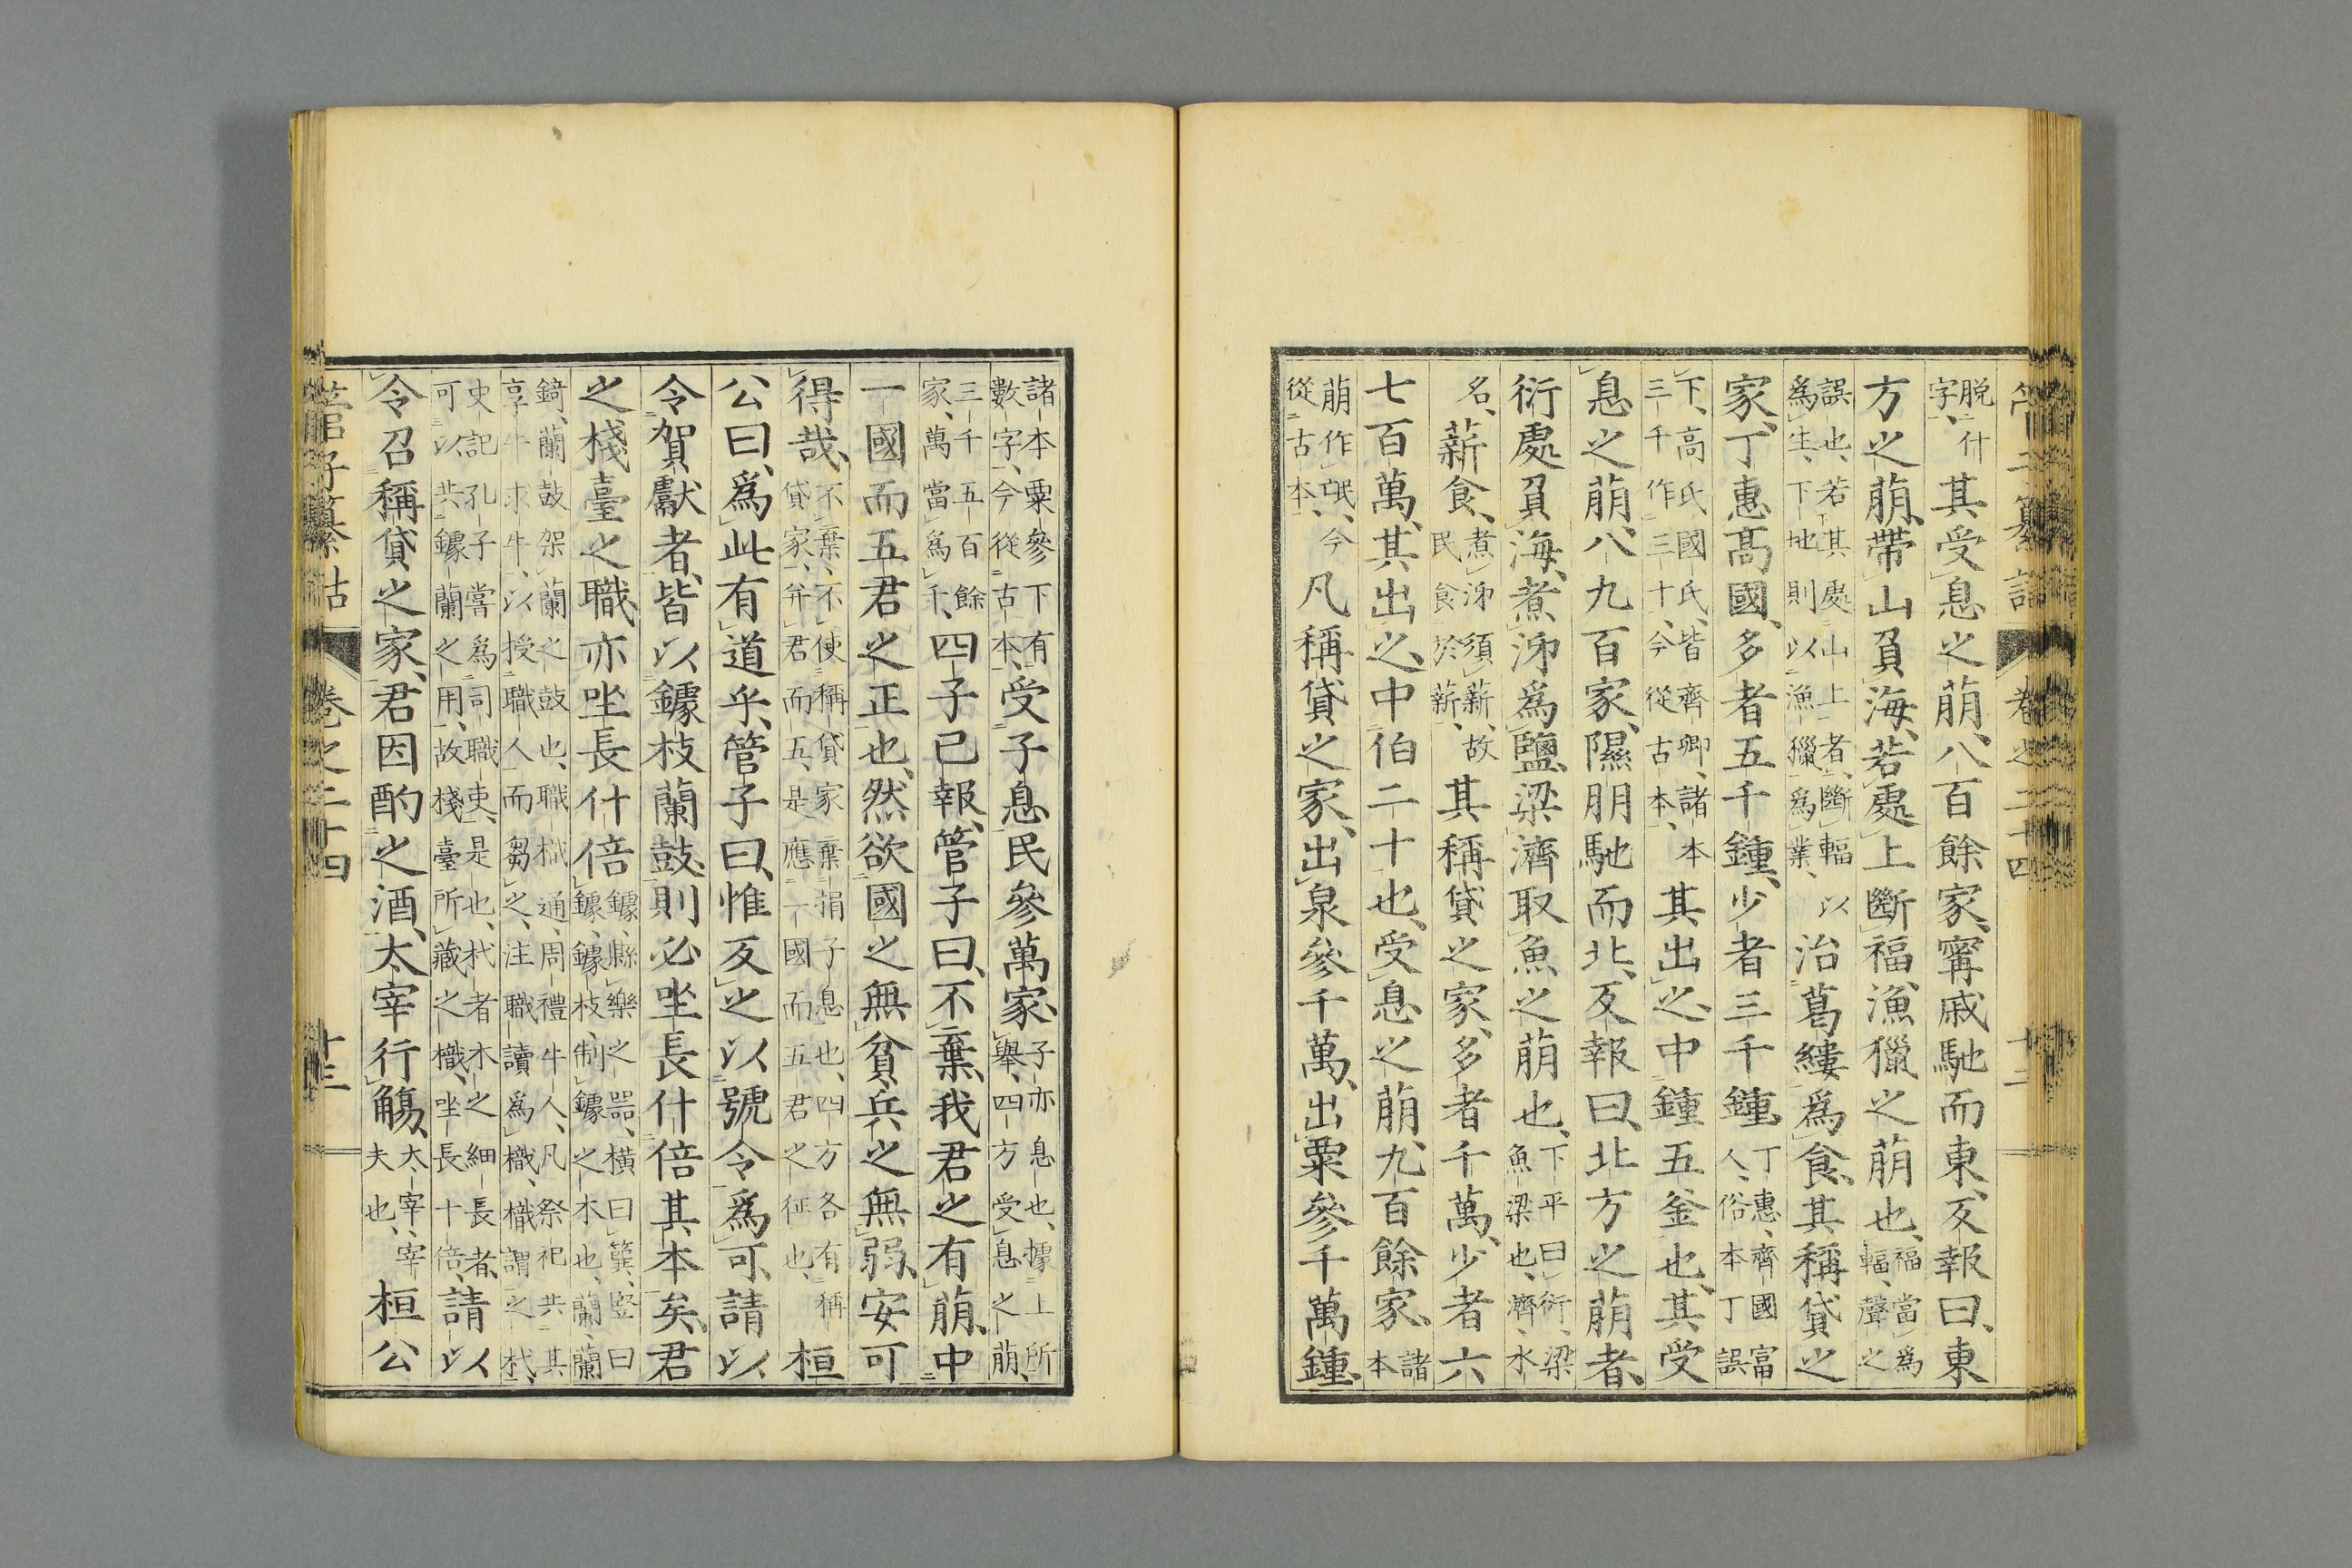 管子纂詁 卷之二十四 十二
脱什字、其受息之萠、八百餘家、寗戚馳而東、反報曰、東
方之萠、帶山負海、若處上斷福、漁獵之萠也、福當爲輻、聲之
誤也、若其處山上者、斷輻以爲生、下地則以漁獵爲業、治葛縷爲食、其稱貸之
家、丁惠高國、多者五千鍾、少者三千鍾、丁惠、齊國富人、俗本丁誤
下、高氏國氏、皆齊卿、諸本三千作三十、今從古本、其出之、中鍾五釜也、其受
息之萠、八九百家、隰朋馳而北、反報曰、北方之萠者、
衍處負海、煮泲爲鹽、梁濟取魚之萠也、下平曰衍、梁魚梁也、濟、水
名、薪食、煮泲須薪、故民食於薪、其稱貸之家、多者千萬、少者六
七百萬、其出之、中伯二十也、受息之萠、九百餘家、諸本
萠作氓、今從古本、凡稱貸之家、出泉參千萬、出粟參千萬鍾、
諸本粟參下有數字、今從古本、受子息民參萬家、子亦息也、據上所舉、四方受息之萠、
三千五百餘家、萬當爲千、四子已報、管子曰、不棄我君之有萠、中
一國而五君之正也、然欲國之無貧、兵之無弱、安可
得哉、不棄、不使稱貸家棄捐子息也、四方各有稱貸家、并君而五、是應一國而五君之征也、桓
公曰、爲此有道乎、管子曰、惟反之以號令爲可、請以
令賀獻者、皆以鐻枝蘭鼓、則必坐長什倍其本矣、君
之棧臺之職、亦坐長什倍、鐻、縣樂之器、橫曰簨、竪曰鐻、鐻枝、制鐻之木也、蘭、蘭
錡、蘭鼓架蘭之鼓也、職樴通、周禮牛人、凡祭祀共其享牛求牛、以授職人而芻之、注職讀爲樴、樴謂之杙、
史記孔子嘗爲司職吏、是也、杙者木之細長者、可以共鐻蘭之用、故棧臺所藏之樴、坐長十倍、請以
令召稱貸之家、君因酌之酒、太宰行觴、太宰、宰夫也、桓公
管子纂詁 卷之二十四 十三